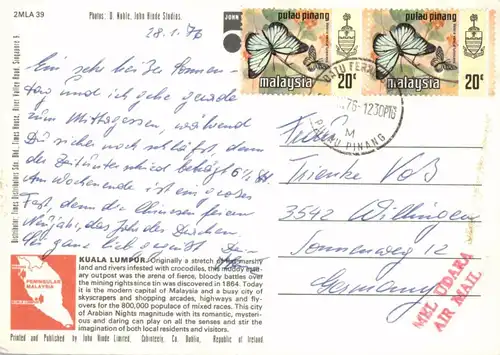 2MLA 39
Photos: D. Noble, John Hinde Studios.
JOHN
28.1.76
Ein sehr heißer Sonnen-
tag und ich gehe gerade
zum Mittagessen, während
Du sicher noch schläfst, denn
der Zeitunterschied beträgt 6½
Am Wochenende ist ein großes
Fest, denn die Chinesen feiern
Neujahr, das Jahr des Drachen.
Sei ganz lieb gegrüßt
pulau pinang
malaysia
20¢
pulau pinang
malaysia
20¢
76-1230PM
M
PULAU PINANG
Trienke Voß
3542 Willingen
Sonnenweg 12
Germany
MEL UDARA
AIR MAIL
PENINSULAR
MALAYSIA
KUALA LUMPUR. Originally a stretch of marshy
land and rivers infested with crocodiles, this muddy
outpost was the arena of fierce, bloody battles over
the mining rights since tin was discovered in 1864. Today
it is the modern capital of Malaysia and a busy city of
skyscrapers and shopping arcades, highways and fly-
overs for the 800,000 populace of mixed races. This city
of Arabian Nights magnitude with its romantic, myster-
ious and daring can play on all the senses and stir the
imagination of both local residents and visitors.
Printed and Published by John Hinde Limited, Cabinteely, Co. Dublin, Republic of Ireland
Distributor: Times Distributors Sdn. Bhd., Times House, River Valley Road, Singapore 9.